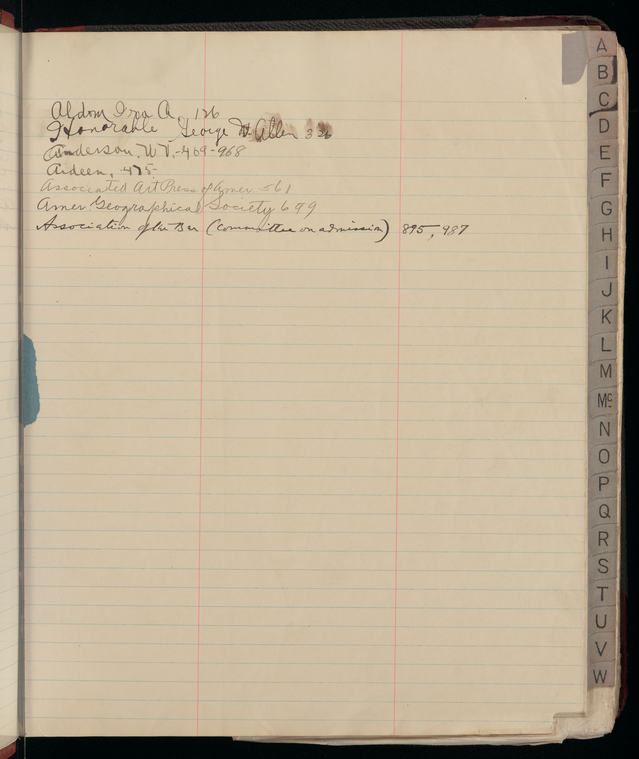 Aldom Ira A. 126
Honorable George W Allen 336
Anderson, W. T. - 409 - 968
Aideen, 475
Associated Art Press of Amer 561
Amer Geographical Society 699
Association of the Bar (Committee on admission) 895, 987
A
B
C
D
E
F
G
H
I
J
K
L
M
Mc
N
O
P
Q
R
S
T
U
V
W